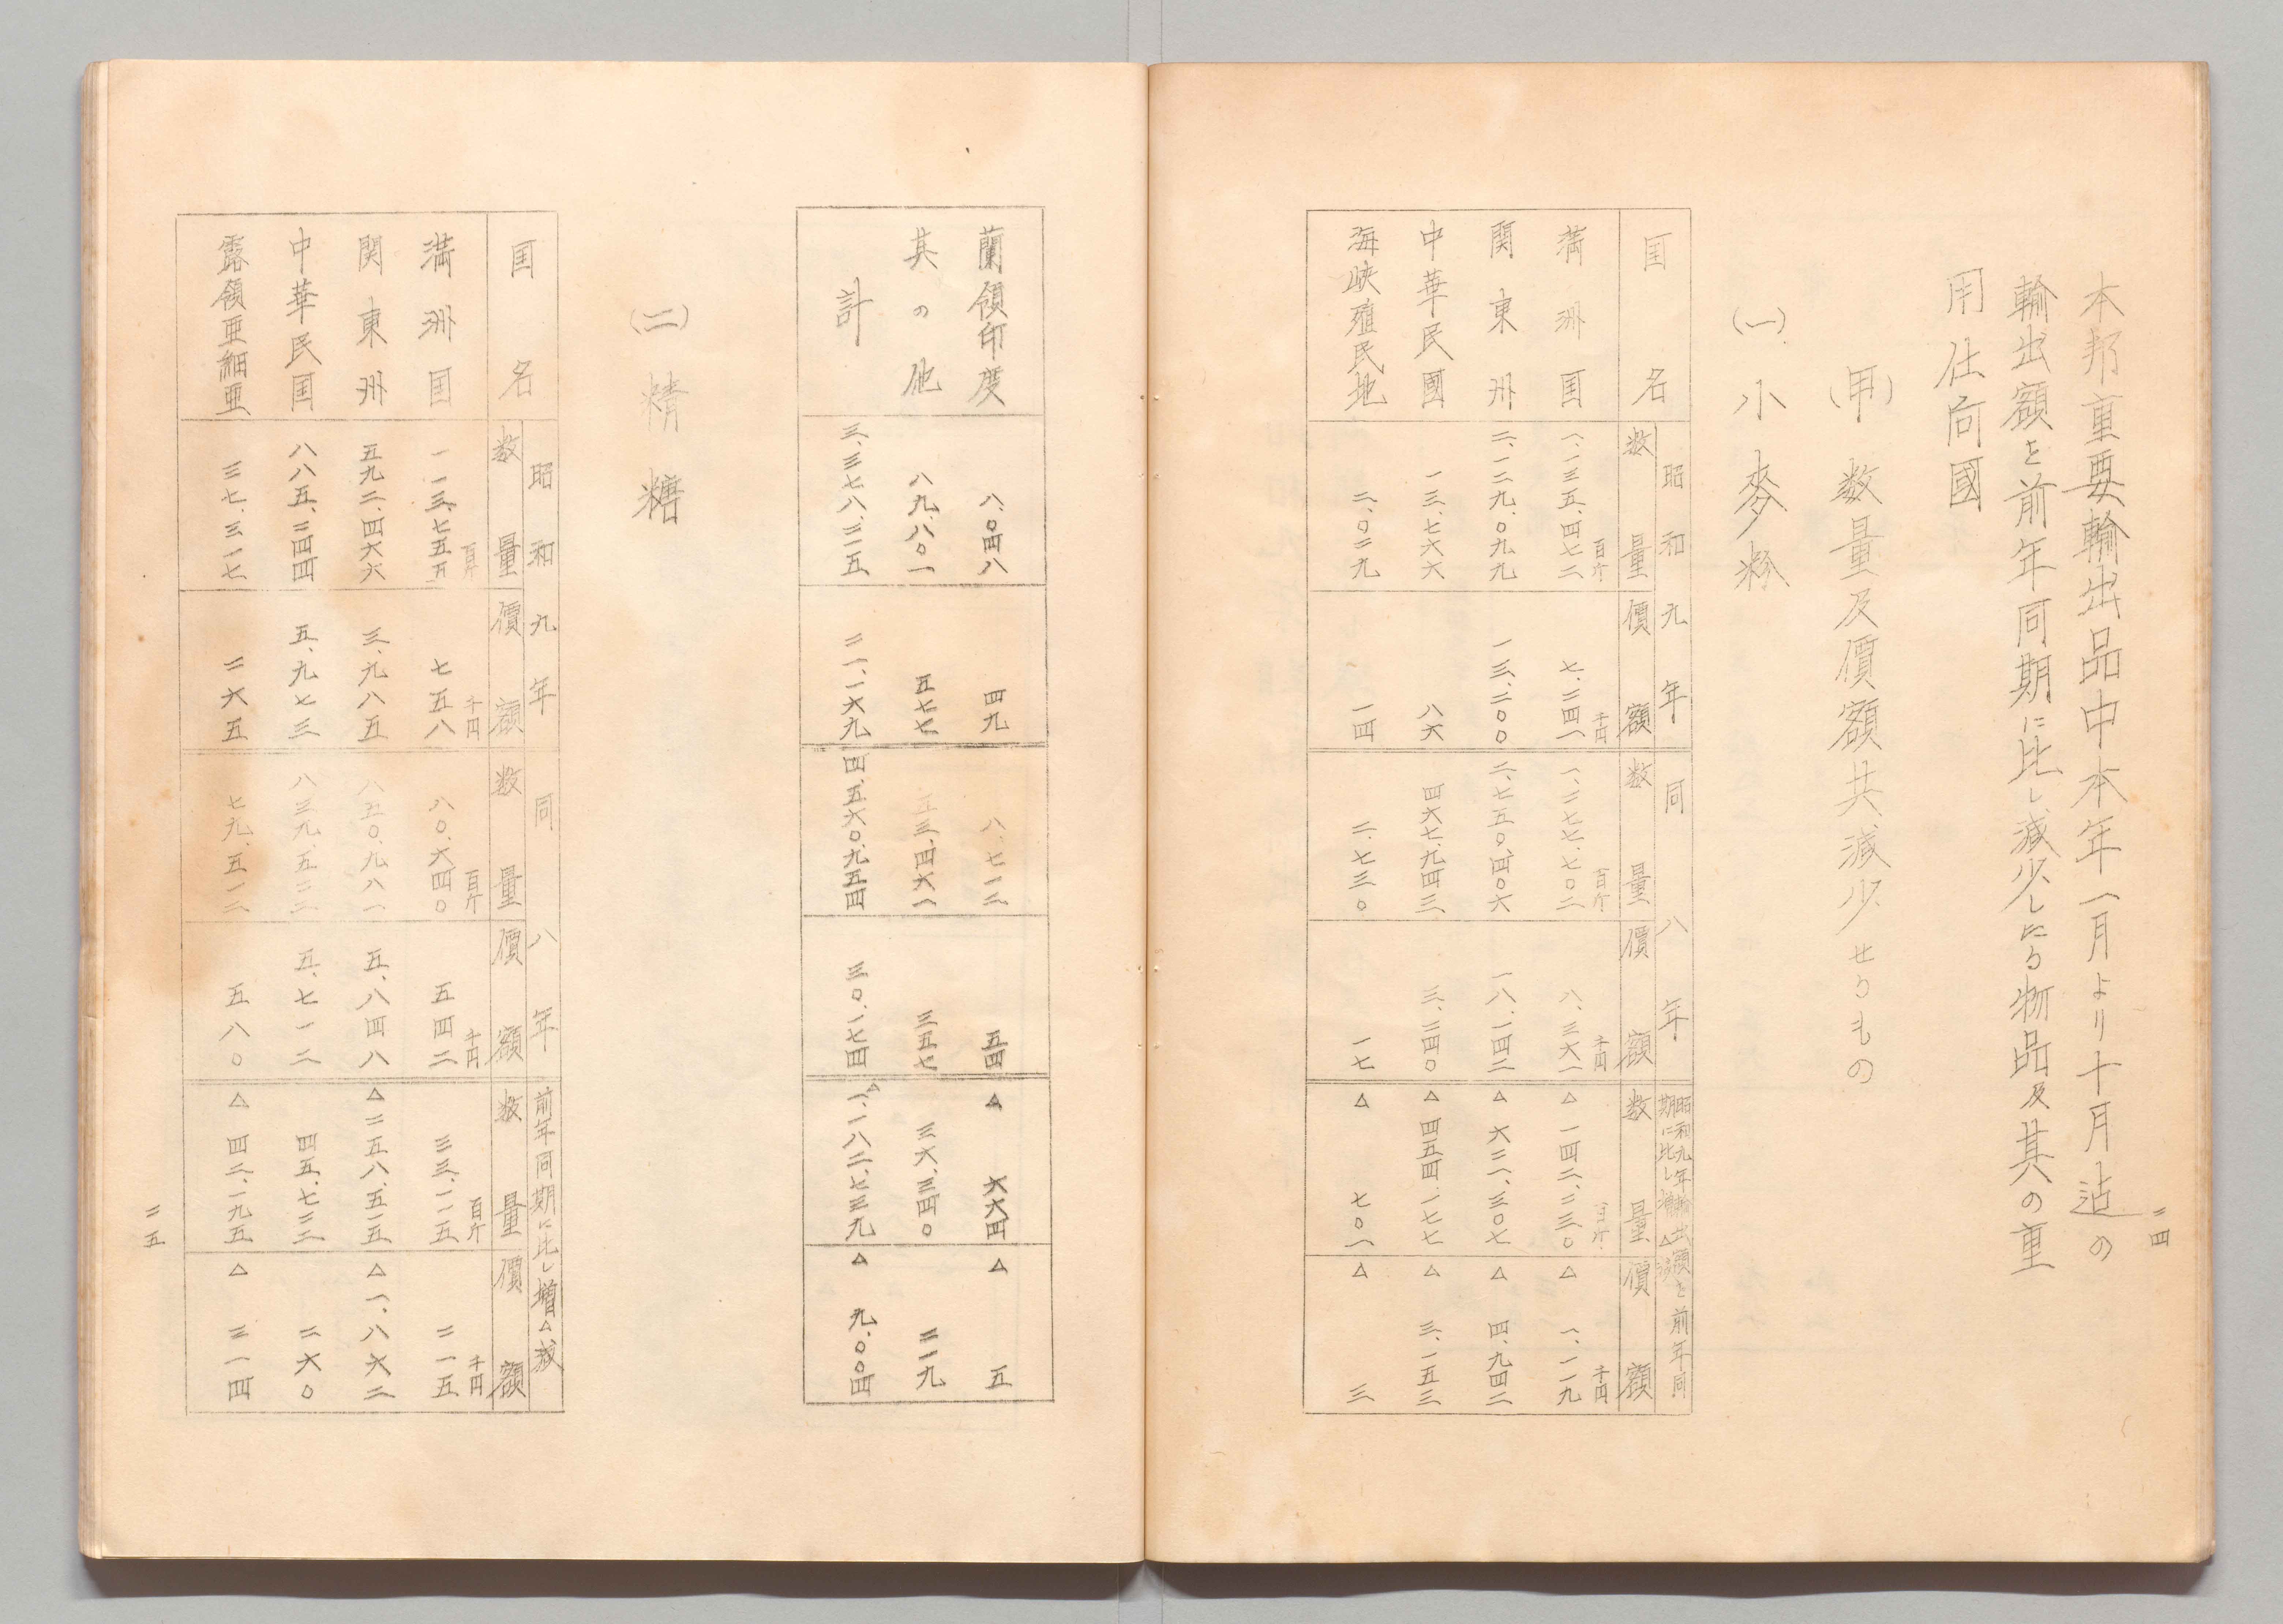 二四
本邦重要輸出品中本年一月より十月迄の
輸出額を前年同期に比し減少したる物品及其の重
用仕向國
(甲) 数量及價額共減少せるもの
(一) 小麥粉
国名 昭和九年 同八年 昭和九年輸出額を前年同期に比し増△減
数量 價額 数量 價額 数量 價額
百斤 千円 百斤 千円 百斤 千円
満洲国 一、一三五、四七二 七、二四一 一、二七七、七〇二 八、三六一 △一四二、二三〇 △一、一一九
関東州 二、一二九、〇九九 一三、二〇〇 二、七五〇、四〇六 一八、一四二 △六二一、三〇七 △四、九四二
中華民國 一三、七六六 八六 四六七、九四三 三、二四〇 △四五四、一七七 △三、一五三
海峡殖民地 二、〇二九 一四 二、七三〇 一七 △七〇一 △三
蘭領印度 八、〇四八 四九 八、七一二 五四 △六六四 △五
其の他 八九、八〇一 五七七 五三、四六一 三五七 三六、三四〇 二一九
計 三、三七八、二一五 二一、一六九 四、五六〇、九五四 三〇、一七四 △一、一八二、七三九 △九、〇〇四
(二) 精糖
国名 昭和九年 同八年 前年同期に比し増△減
数量 價額 数量 價額 数量 價額
百斤 千円 百斤 千円 百斤 千円
満洲国 一一三、七五五 七五八 八〇、六四〇 五四二 三三、一一五 二一五
関東州 五九二、四六六 三、九八五 八五〇、九八一 五、八四八 △二五八、五一五 △一、八六二
中華民国 八八五、二四四 五、九七三 八三九、五一二 五、七一二 四五、七三二 二六〇
露領亜細亜 三七、三一七 二六五 七九、五一二 五八〇 △四二、一九五 △三一四
二五